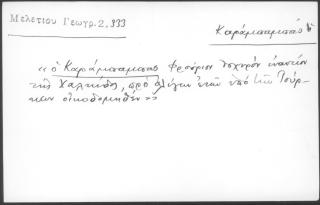 Μελετίου Γεωγρ. 2, 333
Καράμπαμπάς
«ὁ Καράμπαμπας φρούριον ὀχυρὸν ἐναντίον
τῆς Χαλκίδος, πρὸ ὀλίγων ἐτῶν ὑπὸ τῶν Τούρ-
κων οἰκοδομηθέν»